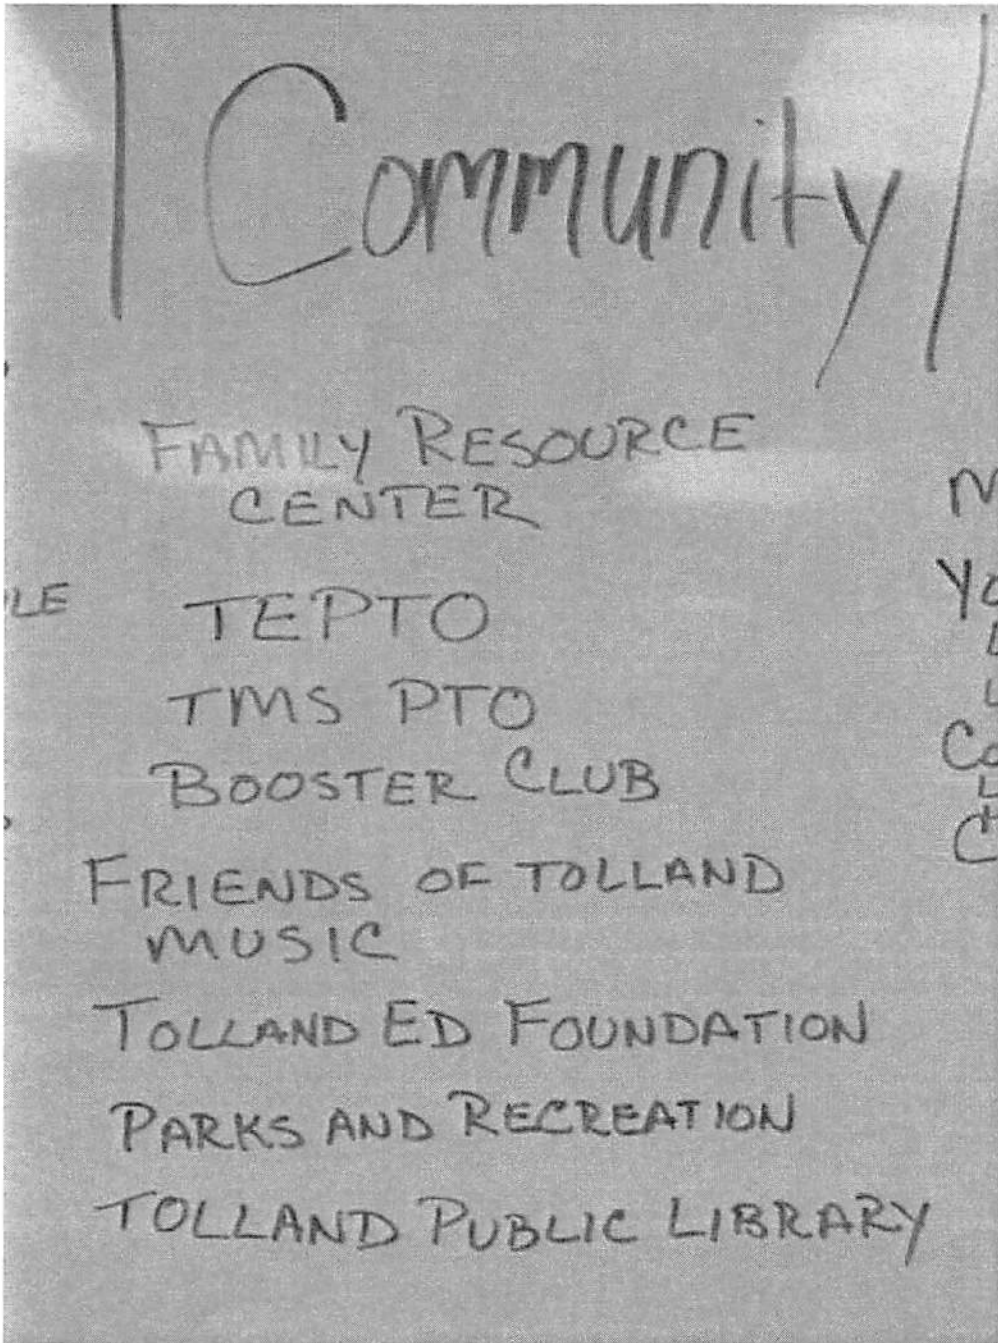 Community
FAMILY RESOURCE
CENTER
TEPTO
TMS PTO
BOOSTER CLUB
FRIENDS OF TOLLAND
MUSIC
TOLLAND ED FOUNDATION
PARKS AND RECREATION
TOLLAND PUBLIC LIBRARY